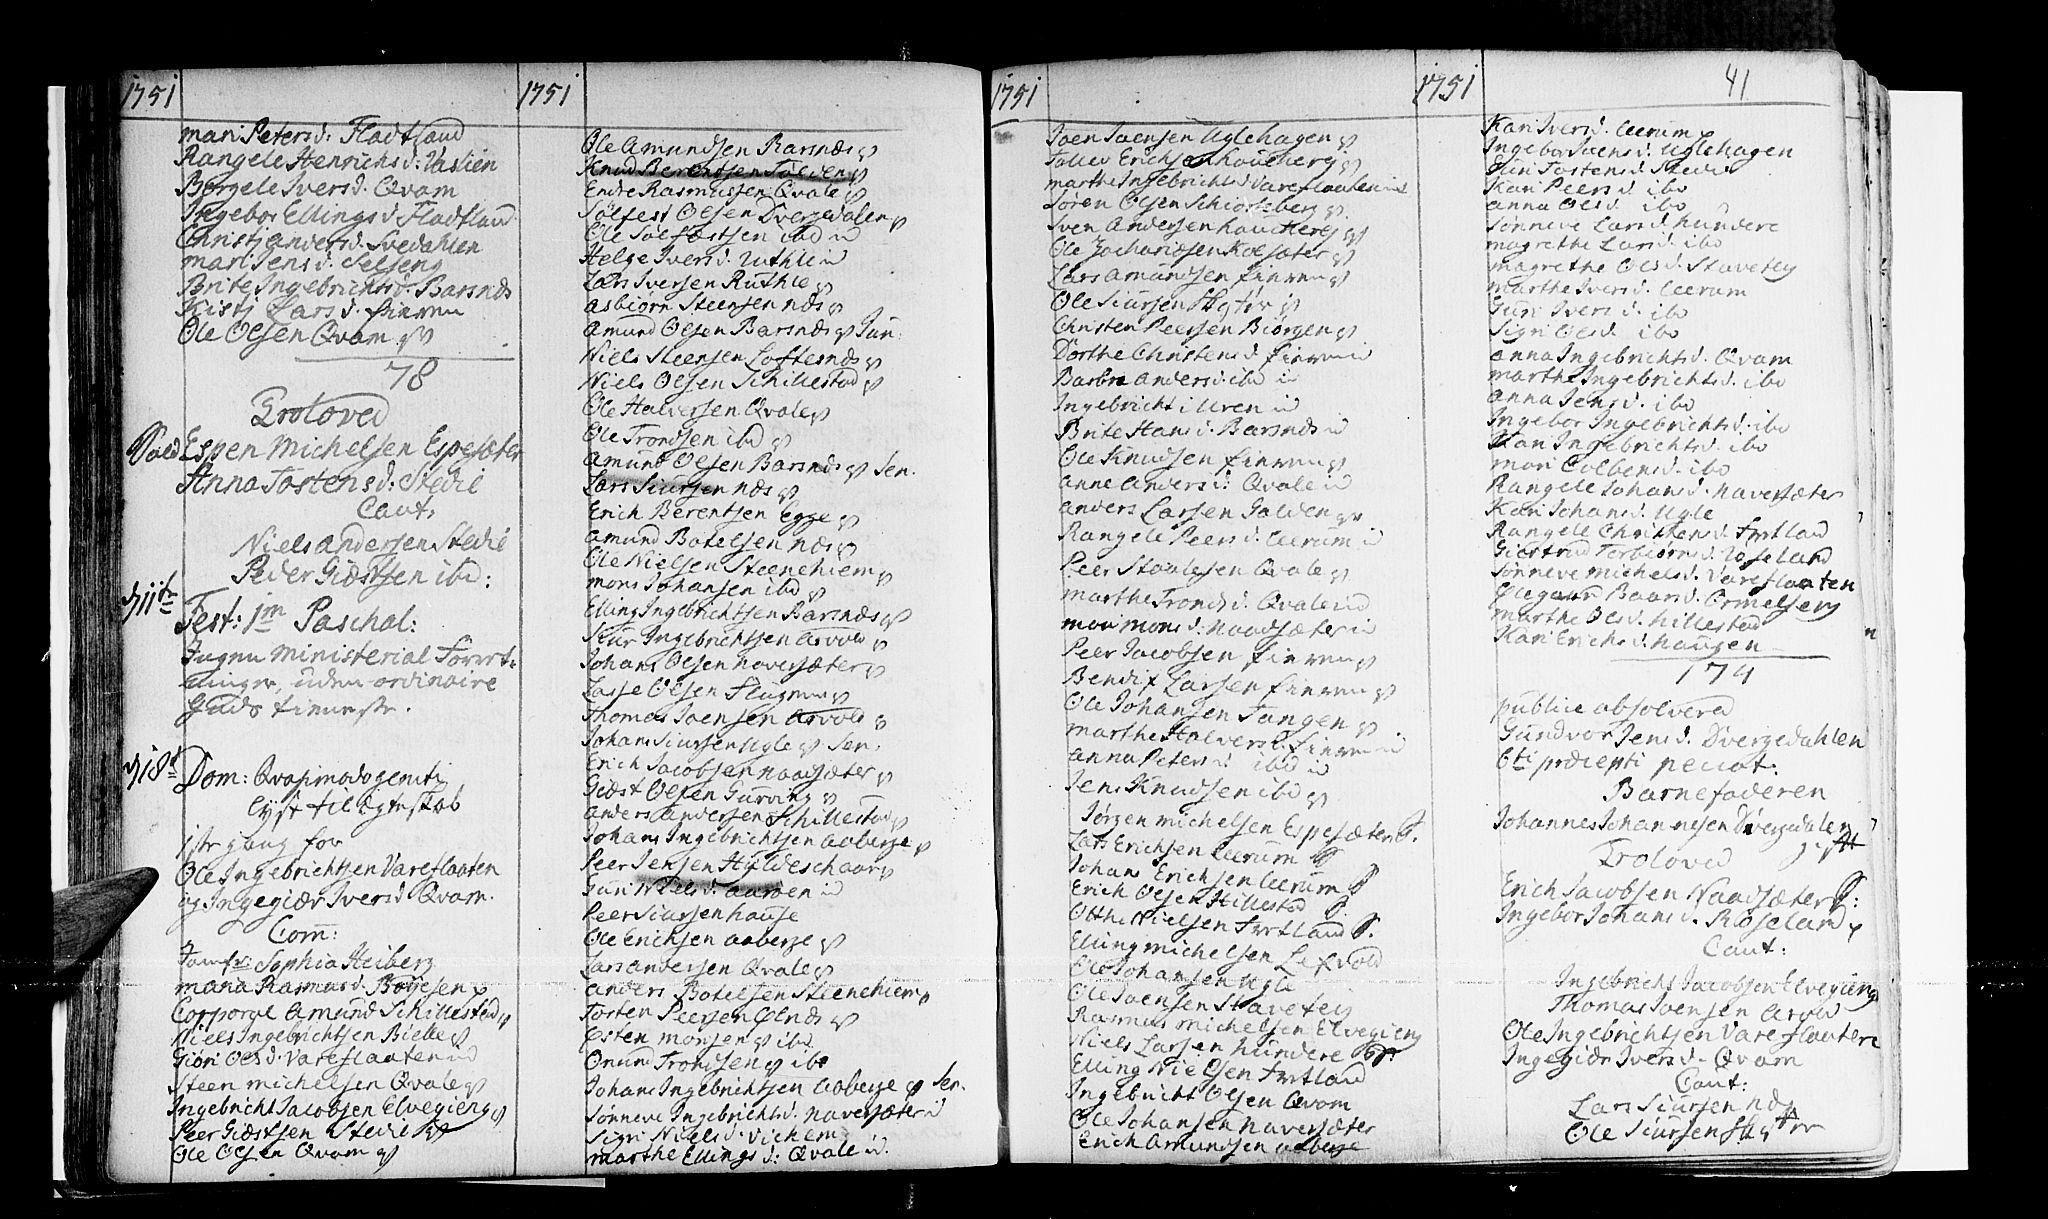 1751
mari Petersd. Fladtland
Rangele Henrichsd. Vaslien
Børgele Iversd. Qvam
Ingebor Ellingsd. Fladtland
Christj Andersd. Svedahlen
mari Jensd. Selseng
Brite Ingebrichtsd. Barsnæs
Kistj Larsd. finven
Ole Olsen Qvam
78
Troloved
Espen Michelsen Espesæter
Anna Tostensd. Stedie
Caut:
Niels Andersen Stedie
Peder Giæstsen ibd:
Fest: 1m Paschal:
Ingen Ministerial Forret-
ninger, uden ordinaire
Guds tieneste.
Dom: Qvasimodogeniti
lyst til Egteskab
1ste gang for
Ole Ingebrichtsen Vareflaaten
og Ingegiær Iversd. Qvam.
Com:
Jomfr: Sophia Heiberg
maria Rasmusd. Bøyesen
Corporal Amund Schillestad
Niels Ingebrichtsen Bielle
Giøri Olsd. Vareflaaten
Steen michelsen Qvale
Ingebricht Jacobsen Elvegieng
Peer Giæstsen Stedie
Ole Olsen Qvam
1751
Ole Amundsen Barsnæs
Knud Berentsen
Endre Rasmussen Qvale
Sølfest Olsen Dvergedalen
Ole Sølfæstsen ibd
Helge Iversd. Ruthle
Lars Iversen Ruthle
Asbiørn Steensen næs
Amund Olsen Barsnæs Jun:
Niels Steensen Loftesnæs
Niels Olsen Schillestad
Ole Halversen Qvale
Ole Trondsen ibd
Amund Olsen Barsnæs Sen.
Lars Siursen næs
Erich Berentsen Egge
Amund Botelsen næs
Ole Nielsen Steenehiem
mons Johansen ibd
Elling Ingebrichtsen Barsnæs
Siur Ingebrichtsen Arvold
Johans Olsen naversæter
Lasse Olsen Flugem
Thomas Joensen Arvold
Johans Siursen Ugle Sen.
Erich Jacobsen naadsæter
Giæst Olsen Gurving
Anders Andersen Schillestad
Johans Ingebrichtsen Aaberge
Peer Jensen Huldeschaar
Guri Nielsd. Aarøen
Peer Siursen hause
Ole Erichsen aaberge
Lars Andersen Qvale
Anders Botelsen Steenehiem
Tosten Peersen Ølnæs
Esten monsen ibd
Onund Trondsen ibd
Johans Ingebrichtsen Aaberge Sen.
Sønneve Ingebrichtsd. naversæter
Sigri Nielsd. Vichem
marthe Ellingsd: Qvale
1751
Joen Joensen Uglehagen
Tollev Erichsen houcherj
marthe Ingebrichtsd Vareflaaten
Søren Olsen Schiørsberg
Sven Andersen houcherj
Ole Zachariæsen Kolsæter
Lars Amundsen finven
Ole Siursen
Christen Peersen Biørgen
Dorthe Christensd. finven
Barbra Andersd. ibd
Ingebricht Uren
Brite Hansd. Barsnæs
Ole Knudsen finven
Anne Andersd: Qvale
Anders Larsen Galden
Rangele Peersd. Leerum
Peer Staalesen Qvale
marthe Trondsd. Qvale
mari monsd. Naadsæter
Peer Jacobsen finven
Bendix Larsen finven
Ole Johansen Tangen
marthe Halversd. finven
Anna Petersd ibd
Jens Knudsen ibd
Jørgen michelsen Espesæter
Lars Erichsen Leerum
Johans Erichsen Leerum
Erich Olsen Hillestad
Otthe Nielsen Frtland
Elling michelsen Lefvold
Ole Johansen Ugle
Ole Joensen Stavetey
Rasmus michelsen Elvegieng
Niels Larsen hundere
Elling Nielsen Frtland
Ingebricht Olsen Qvam
Ole Johansen naversæter
Erich Amundsen aaberge
1751
41
Kari Iversd. Leerum
Ingebor Svensd. Uglehagen
Guri Tostensd. Stedie
Kari Peersd ibd
anna Olsd. ibd
Sønneve Larsd. hundere
magrethe Larsd. ibd
magrethe Olsd. Stavetey
marthe Iversd. Leerum
Guri Iversd. ibd
Sigri Olsd. ibd
anna Ingebrichtsd. Qvam
marthe Ingebrichtsd. ibd
anna Jensd. ibd
Ingebor Ingebrichtsd. ibd
Kari Ingebrichtsd. ibd
mari Colbensd. ibd
Rangele Johansd. naversæter
Kari Johansd. Ugle
Rangele Christensd. Frtland
Giertrud Torbiørnsd. Røseland
Sønneve michelsd. Vareflaaten
Baarsd. Ormelseng
marthe Olsd. hillestad
Kari Erichsd. haugen
174
publice absolvered
Gundvor Jensd. Dvergedahlen
6ti præcepti peccat:
Barnefaderen
Johannes Johannesen Dvergedalen
Troloved
Erich Jacobsen Naadsæter
Ingebor Johansd. Røseland
Caut:
Ingebricht Jacobsen Elvegieng
Thomas Joensen Arvold
Ole Ingebrichtsen Vareflaaten
Ingegiær Iversd. Qvam
Caut:
Lars Siursen næs
Ole Siursen